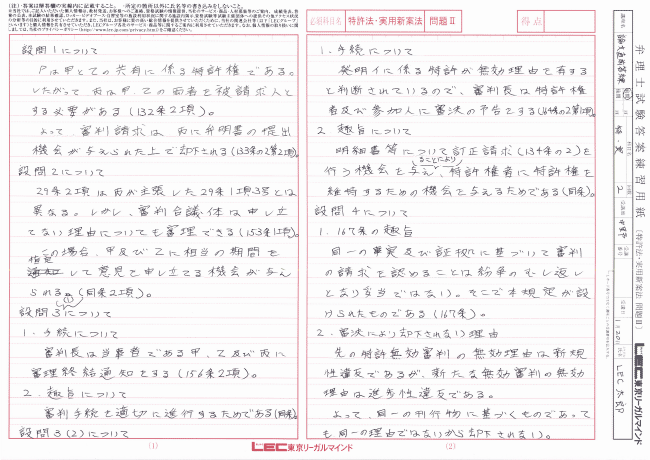 (注)・答案は解答欄の実線内に記載すること。・所定の箇所以外に氏名等の書き込みをしないこと。
必須科目名 特許法・実用新案法 問題Ⅱ
得点
設問1について
Pは甲と乙の共有に係る特許権である。
したがって丙は甲乙の両者を被請求人と
する必要がある(132条2項)。
よって、審判請求は丙に弁明書の提出
機会が与えられた上で却下される(133条の2第2項)。
設問2について
29条2項は丙が主張した29条1項3号とは
異なる。しかし、審判合議体は申し立
てない理由についても審理できる(153条1項)。
この場合、甲及び乙に相当の期間を
指定して意見を申し立てる機会が与え
られる。(同条2項)。
設問3(1)について
1.手続について
審判長は当事者である甲、乙及び丙に
審理終結通知をする(156条2項)。
2.趣旨について
審判手続を適切に進行するためである(同条)。
設問3(2)について
(1)
LEC東京リーガルマインド
1.手続について
発明イに係る特許が無効理由を有する
と判断されているので、審判長は特許権
者及び参加人に審決の予告をする(164条の2第1項)。
2 趣旨について
明細書等について訂正請求(134条の2)を
行う機会を与えることにより、特許権者に特許権を
維持するための機会を与えるためである(同条)。
設問4について
1.167条の趣旨
同一の事実及び証拠に基づいて審判
の請求を認めることは紛争のむし返し
となり妥当ではない。そこで本規定が設
けられたものである(167条)。
2.審決により却下されない理由
先の特許無効審判の無効理由は新規
性違反であるが、新たな無効審判の無効
理由は進歩性違反である。
よって、同一の刊行物に基づくものであって
も同一の理由ではないから却下されない。
(2)
弁理士試験答案練習用紙
〔特許法・実用新案法 問題Ⅱ〕
LEC東京リーガルマインド
講座名
論文直前答練
回数
2
1月20日
LEC太郎